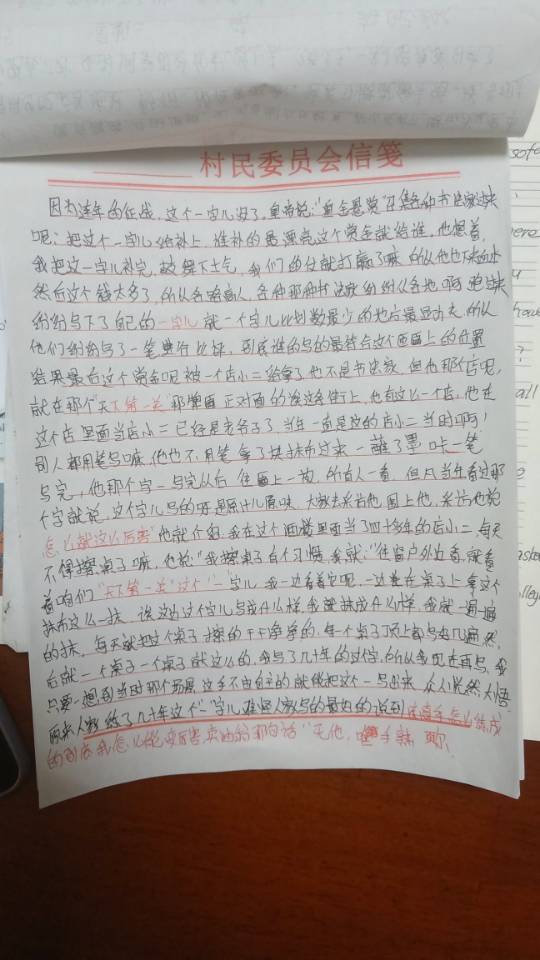 村民委员会信笺
因为连年的征战，这个一字儿没了，皇帝说："重金悬赏"召集各种书法家过来
呢；把这个一字儿给补上，谁补的最漂亮这个赏金就给谁，他想着，
我把这一字儿补完，鼓舞下士气，我们的仗就打赢了嘛，所以他也下来血本
然后这个钱太多了，所以各路商人，各种那种书法家纷纷从各地啊跑过来
纷纷写下了自己的一字儿就一个字儿比划数最少的也后最显功夫，所以
他们纷纷写了一笔进行比拼，到底谁的写的最符合这个画面上的位置
结果最后这个赏金呢被一个店小二给拿了他不是书法家，但他那个店呢，
就在那个"天下第一关"那牌匾正对面的淡这条街上，他有这么一个店，他在
这个店里面当店小二已经是老爷子了当年一直是这的店小二当时啊！
别人都用笔写嘛，他也不用笔拿了块抹布过来一蘸了墨咔一笔
写完，他那个字一写完从后往画上一放，所有人一看，但凡当年看过那
个字就说，这个字儿写的可是原汁儿原味，大家去采访他，围上他，采访他说
怎么就这么厉害"他就介绍，我在这个酒楼里面当了四十多年的店小二，每天
不得擦桌子嘛，他说："我擦桌子有个习惯，我就："往窗户外边看，就看
着咱们"天下第一关"这个"一"字儿，我一边看着它呢，一边就在桌子上拿这个
抹布这么一抹，诶这边这个字儿写成什么样，我就抹成什么样，我就一遍一遍
的抹，每天就把这个桌子擦的干干净净的，每个桌子顶上都写好几遍，然
后就一个桌子一个桌子就这么的，我写了几十年的这字，所以我现在再写，我
只要一想到当时那个场景，这手不由自主的就能把这个一写出来，众人恍然大悟
原来人家练了几十年这个"一"字儿难怪人家写的最好的说到底高手怎么练成
的到底我怎么能变厉害卖油翁那句话"无他，唯手熟尔